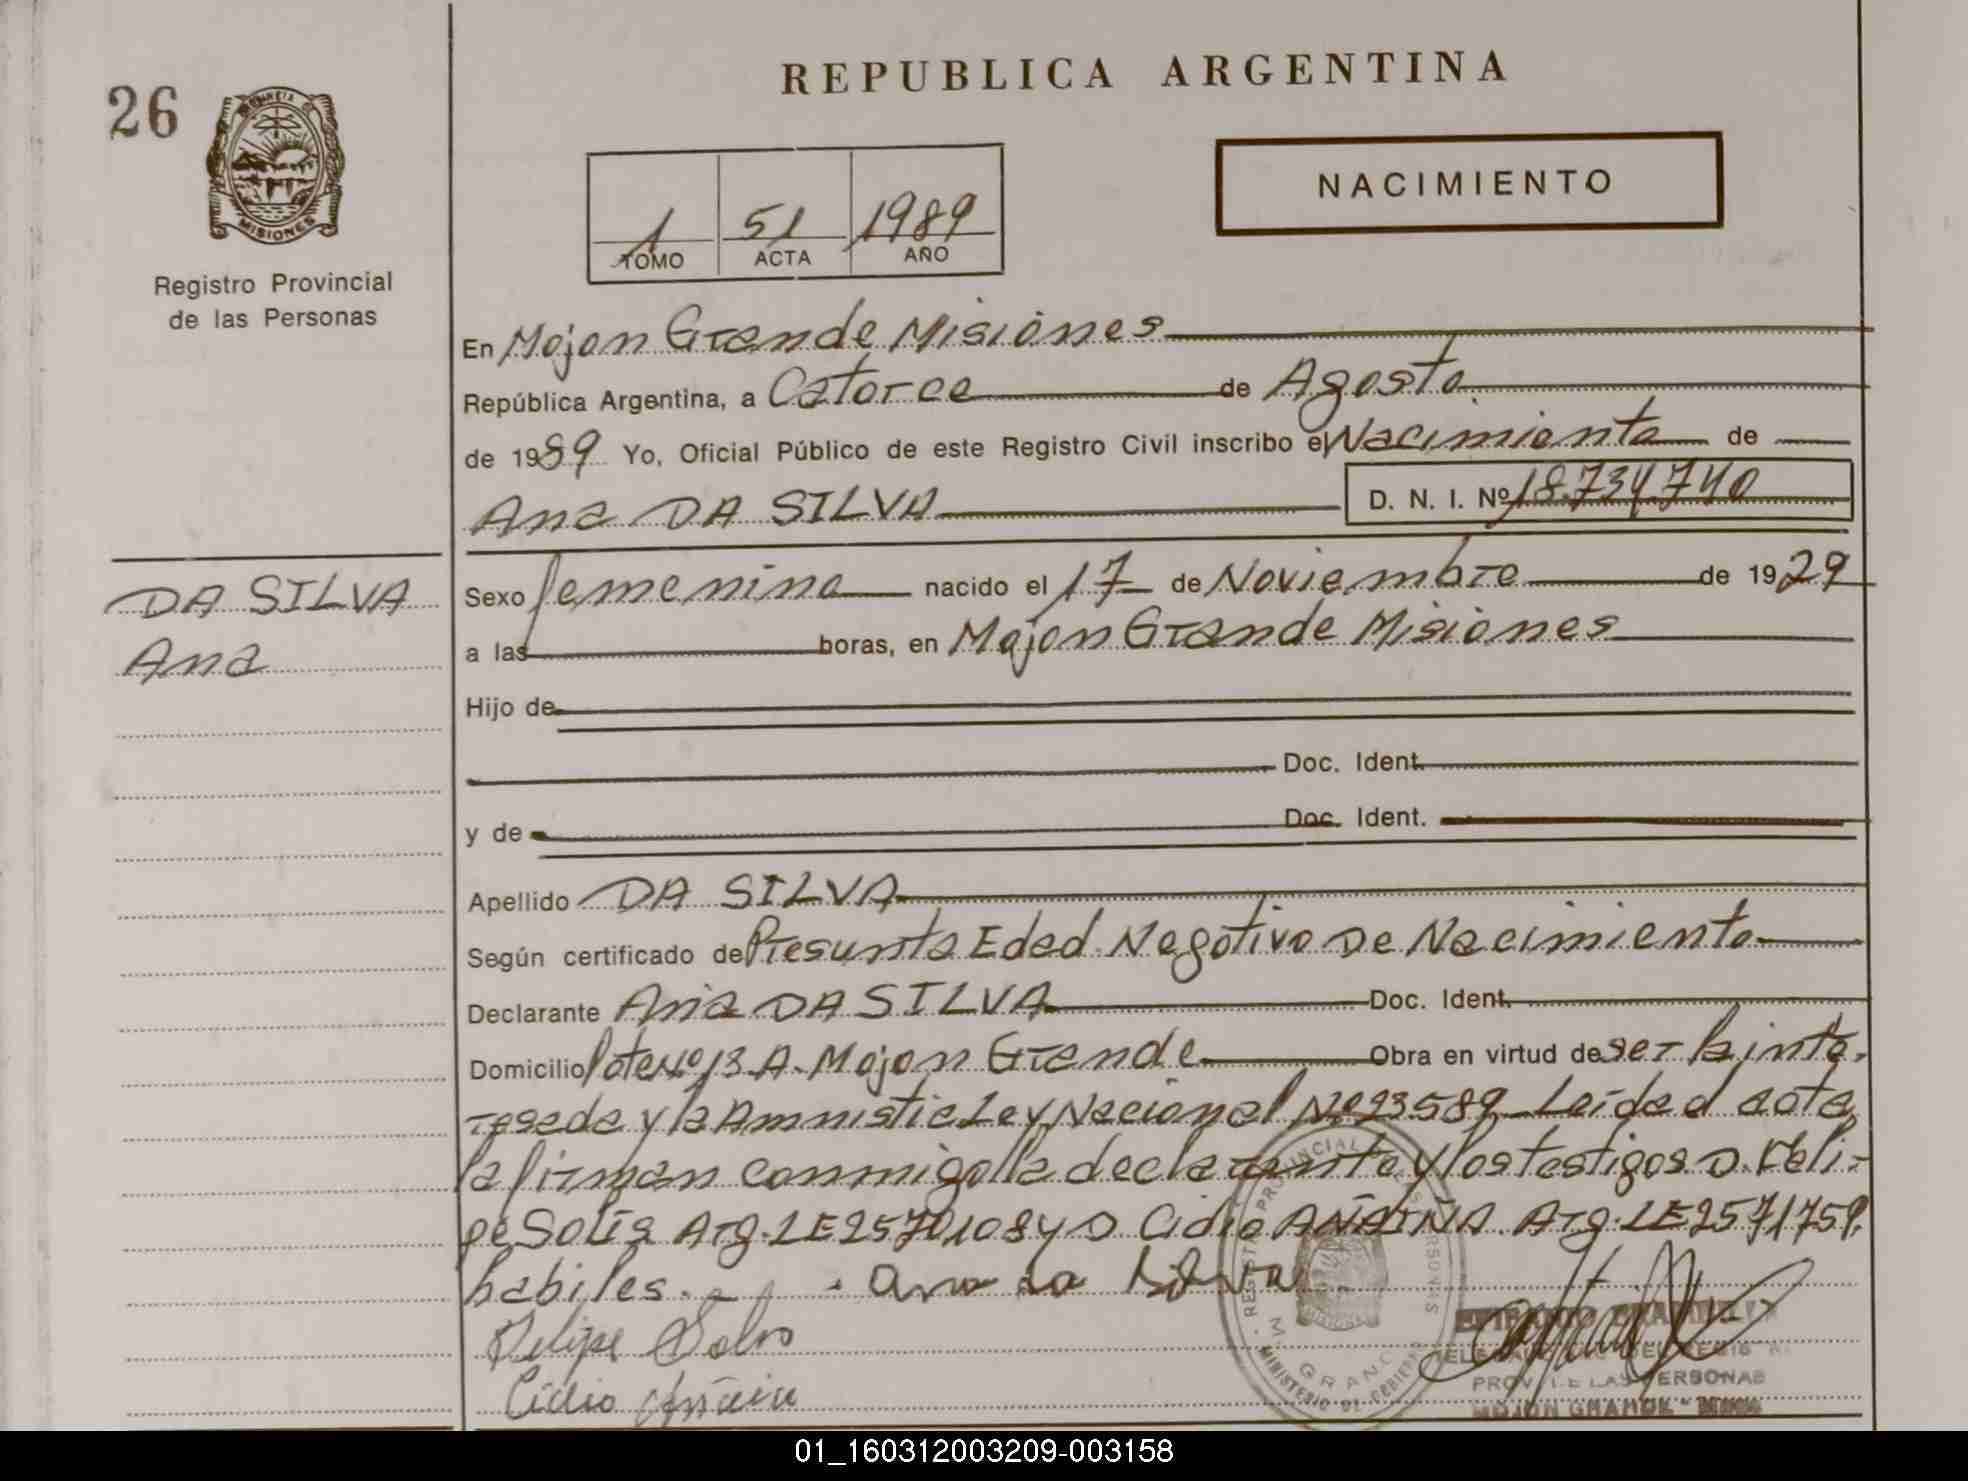 REPUBLICA ARGENTINA
26
PROVINCIA DE
MISIONES
NACIMIENTO
1 51 1989
TOMO ACTA AÑO
Registro Provincial
de las Personas
En Mojon Grande Misiones
República Argentina, a Catorce de Agosto
de 1989 Yo, Oficial Público de este Registro Civil inscribo el Nacimiento de
Ana DA SILVA D. N. I. Nº 18.734.740
DA SILVA
Ana
Sexo femenino nacido el 17 de Noviembre de 1929
a las horas, en Mojon Grande Misiones
Hijo de
Doc. Ident.
y de Doc. Ident.
Apellido DA SILVA
Según certificado de Presunta Edad Negativo De Nacimiento
Declarante Ana DA SILVA Doc. Ident.
Domicilio lote Nº 13 A. Mojon Grande Obra en virtud de ser la inte-
resada y la Amnistia Ley Nacional Nº 23589 Leida el acta
la firman conmigo la declarante y los testigos D. Feli-
pe Solis Arg. LE 2570108 y D Cidio Arg. LE 2571759.
habiles. - Ana da Silva
Felipe Solis
Cidio
REGISTRO PROVINCIAL DE LAS PERSONAS
M. GRANDE
MINISTERIO DE GOBIERNO
MISIONES
DEL REGIS
PROV. DE LAS PERSONAS
MOJON GRANDE - MNES
01_160312003209-003158